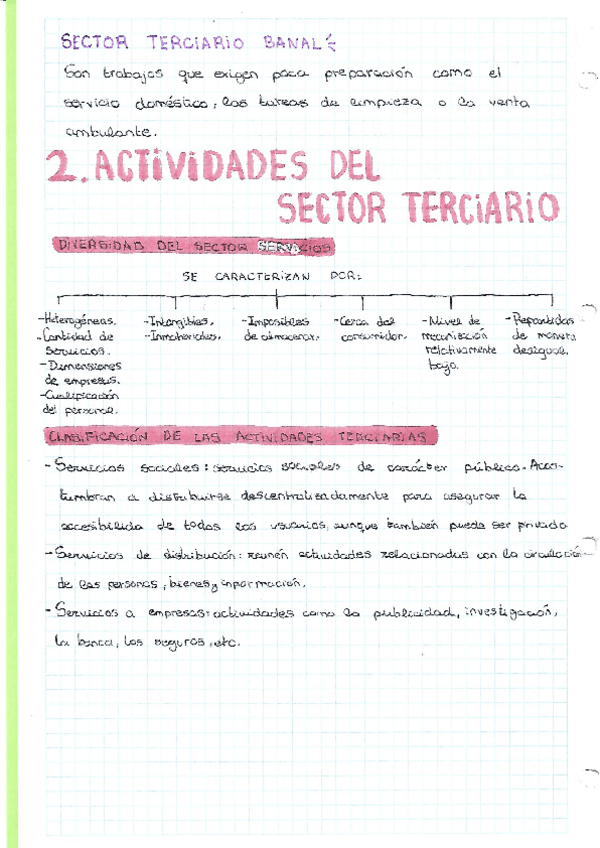 SECTOR TERCIARIO BANAL
Son trabajos que exigen poca preparación como el
servicio doméstico, las tareas de limpieza o la venta
ambulante.
2. ACTIVIDADES DEL
SECTOR TERCIARIO
DIVERSIDAD DEL SECTOR SERVICIOS
SE CARACTERIZAN POR:
-Heterogéneas.
-Cantidad de
Servicios.
-Dimensiones
de empresas.
-Cualificación
del personal.
-Intangibles.
-Inmateriales.
-Imposibles
de almacenar.
-Cerca del
consumidor.
-Nivel de
mecanización
relativamente
bajo.
-Repartidas
de manera
desigual.
CLASIFICACIÓN DE LAS ACTIVIDADES TERCIARIAS
-Servicios sociales: servicios sociales de carácter público. Acos-
tumbran a distribuirse descentralizadamente para asegurar la
accesibilida de todos los usuarios, aunque también puede ser privado
-Servicios de distribución: reunen actividades relacionadas con la circulación
de las personas, bienes y información.
-Servicios a empresas: actividades como la publicidad, investigación,
la banca, los seguros, etc.